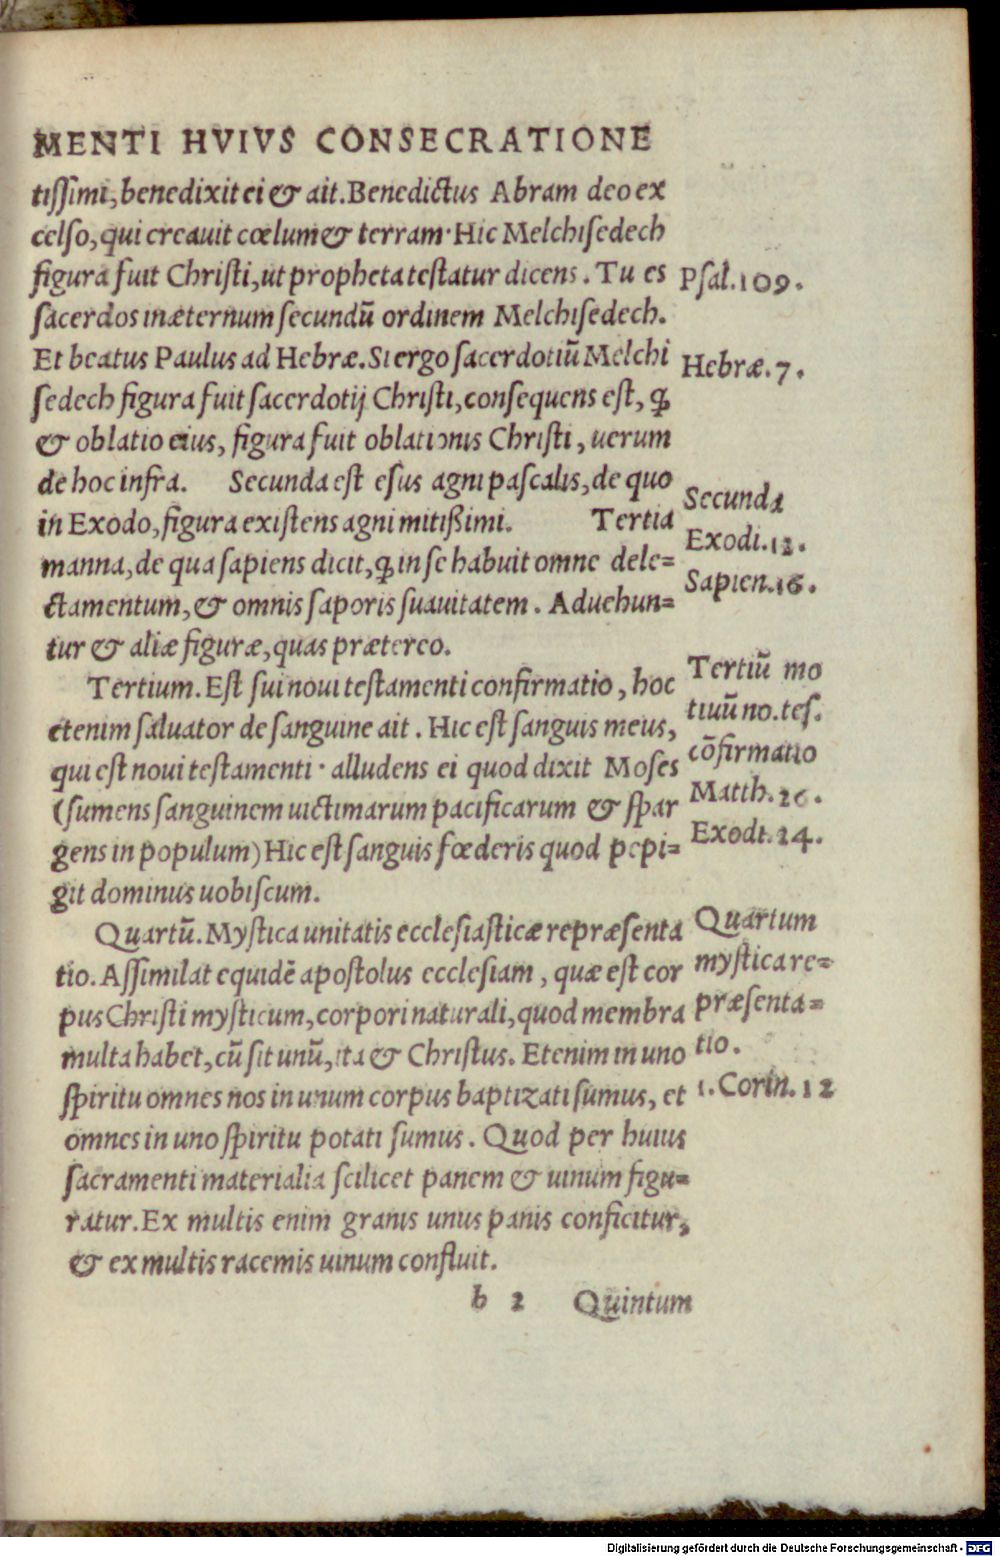 MENTI HVIVS CONSECRATIONE
tissimi, benedixit ei & ait. Benedictus Abram deo ex
celso, qui creauit cœlum & terram· Hic Melchisedech
figura fuit Christi, ut propheta testatur dicens. Tu es
sacerdos in æternum secundũ ordinem Melchisedech.
Et beatus Paulus ad Hebræ. Si ergo sacerdotiũ Melchi
sedech figura fuit sacerdotij Christi, consequens est, ꝙ
& oblatio eius, figura fuit oblationis Christi, uerum
de hoc infra. Secunda est esus agni pascalis, de quo
in Exodo, figura existens agni mitißimi. Tertia
manna, de qua sapiens dicit, ꝙ in se habuit omne dele=
ctamentum, & omnis saporis suauitatem. Aduehun=
tur & aliæ figuræ, quas prætereo.
Tertium. Est sui noui testamenti confirmatio, hoc
etenim saluator de sanguine ait. Hic est sanguis meus,
qui est noui testamenti· alludens ei quod dixit Moses
(sumens sanguinem uictimarum pacificarum & spar
gens in populum) Hic est sanguis fœderis quod pepi=
git dominus uobiscum.
Quartũ. Mystica unitatis ecclesiasticæ repræsenta
tio. Assimilat equidẽ apostolus ecclesiam, quæ est cor
pus Christi mysticum, corpori naturali, quod membra
multa habet, cũ sit unũ, ita & Christus. Etenim in uno
spiritu omnes nos in unum corpus baptizati sumus, et
omnes in uno spiritu potati sumus. Quod per huius
sacramenti materialia scilicet panem & uinum figu=
ratur. Ex multis enim granis unus panis conficitur,
& ex multis racemis uinum confluit.
b 2 Quintum
Psal. 109.
Hebræ. 7.
Secunda
Exodi. 12.
Sapien. 16.
Tertiũ mo
tiuũ no. tes.
cõfirmatio
Matth. 26.
Exodi. 24.
Quartum
mystica re=
præsenta=
tio.
1. Corin. 12
Digitalisierung gefördert durch die Deutsche Forschungsgemeinschaft - DFG